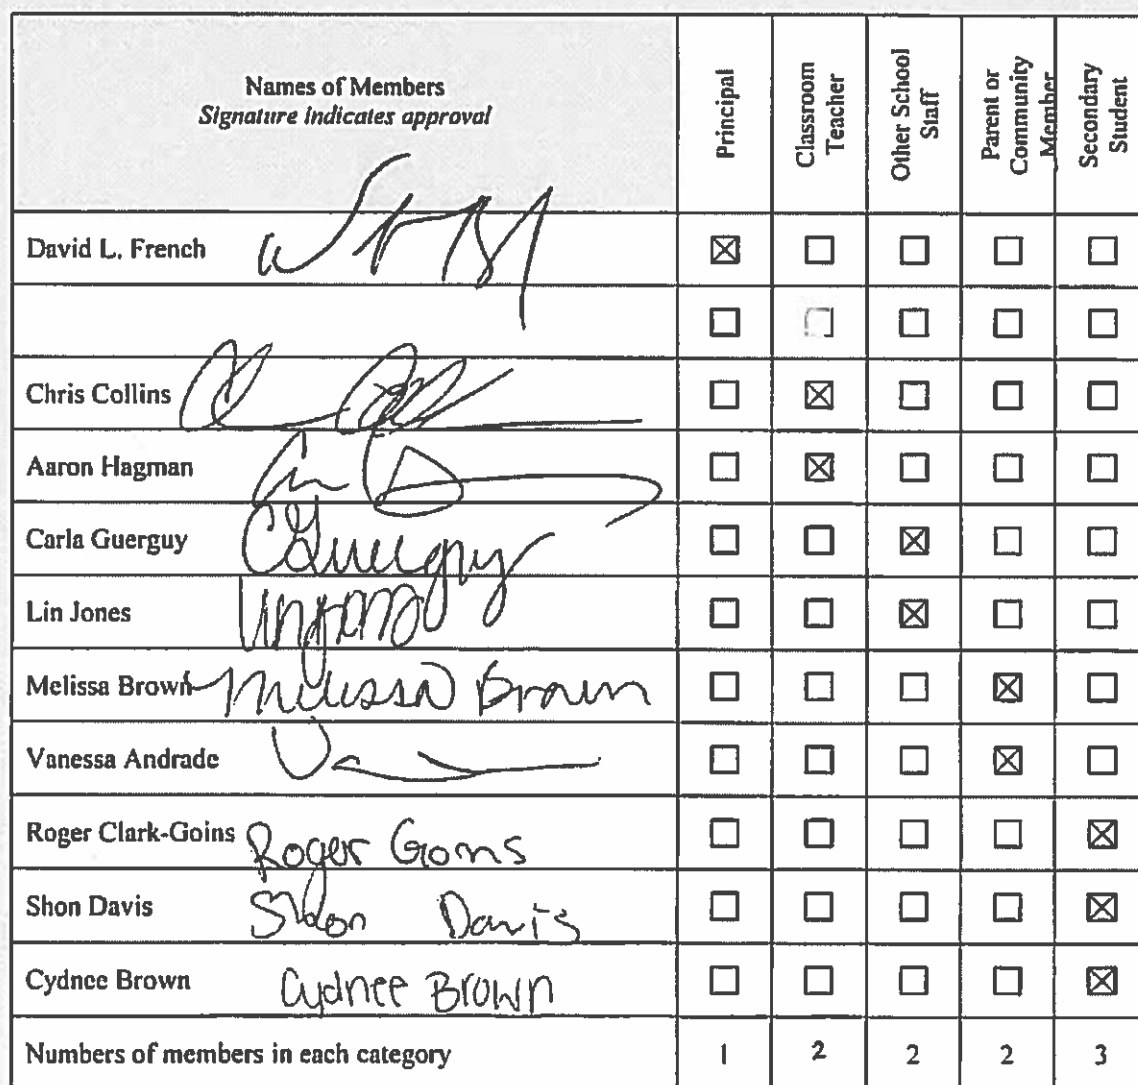 Names of Members
Signature indicates approval
Principal
Classroom
Teacher
Other School
Staff
Parent or
Community
Member
Secondary
Student
David L. French
☒ ☐ ☐ ☐ ☐
☐ ☐ ☐ ☐ ☐
Chris Collins
☐ ☒ ☐ ☐ ☐
Aaron Hagman
☐ ☒ ☐ ☐ ☐
Carla Guerguy CGuerguy
☐ ☐ ☒ ☐ ☐
Lin Jones
☐ ☐ ☒ ☐ ☐
Melissa Brown Melissa Brown
☐ ☐ ☐ ☒ ☐
Vanessa Andrade
☐ ☐ ☐ ☒ ☐
Roger Clark-Goins Roger Goins
☐ ☐ ☐ ☐ ☒
Shon Davis Shon Davis
☐ ☐ ☐ ☐ ☒
Cydnee Brown Cydnee Brown
☐ ☐ ☐ ☐ ☒
Numbers of members in each category 1 2 2 2 3